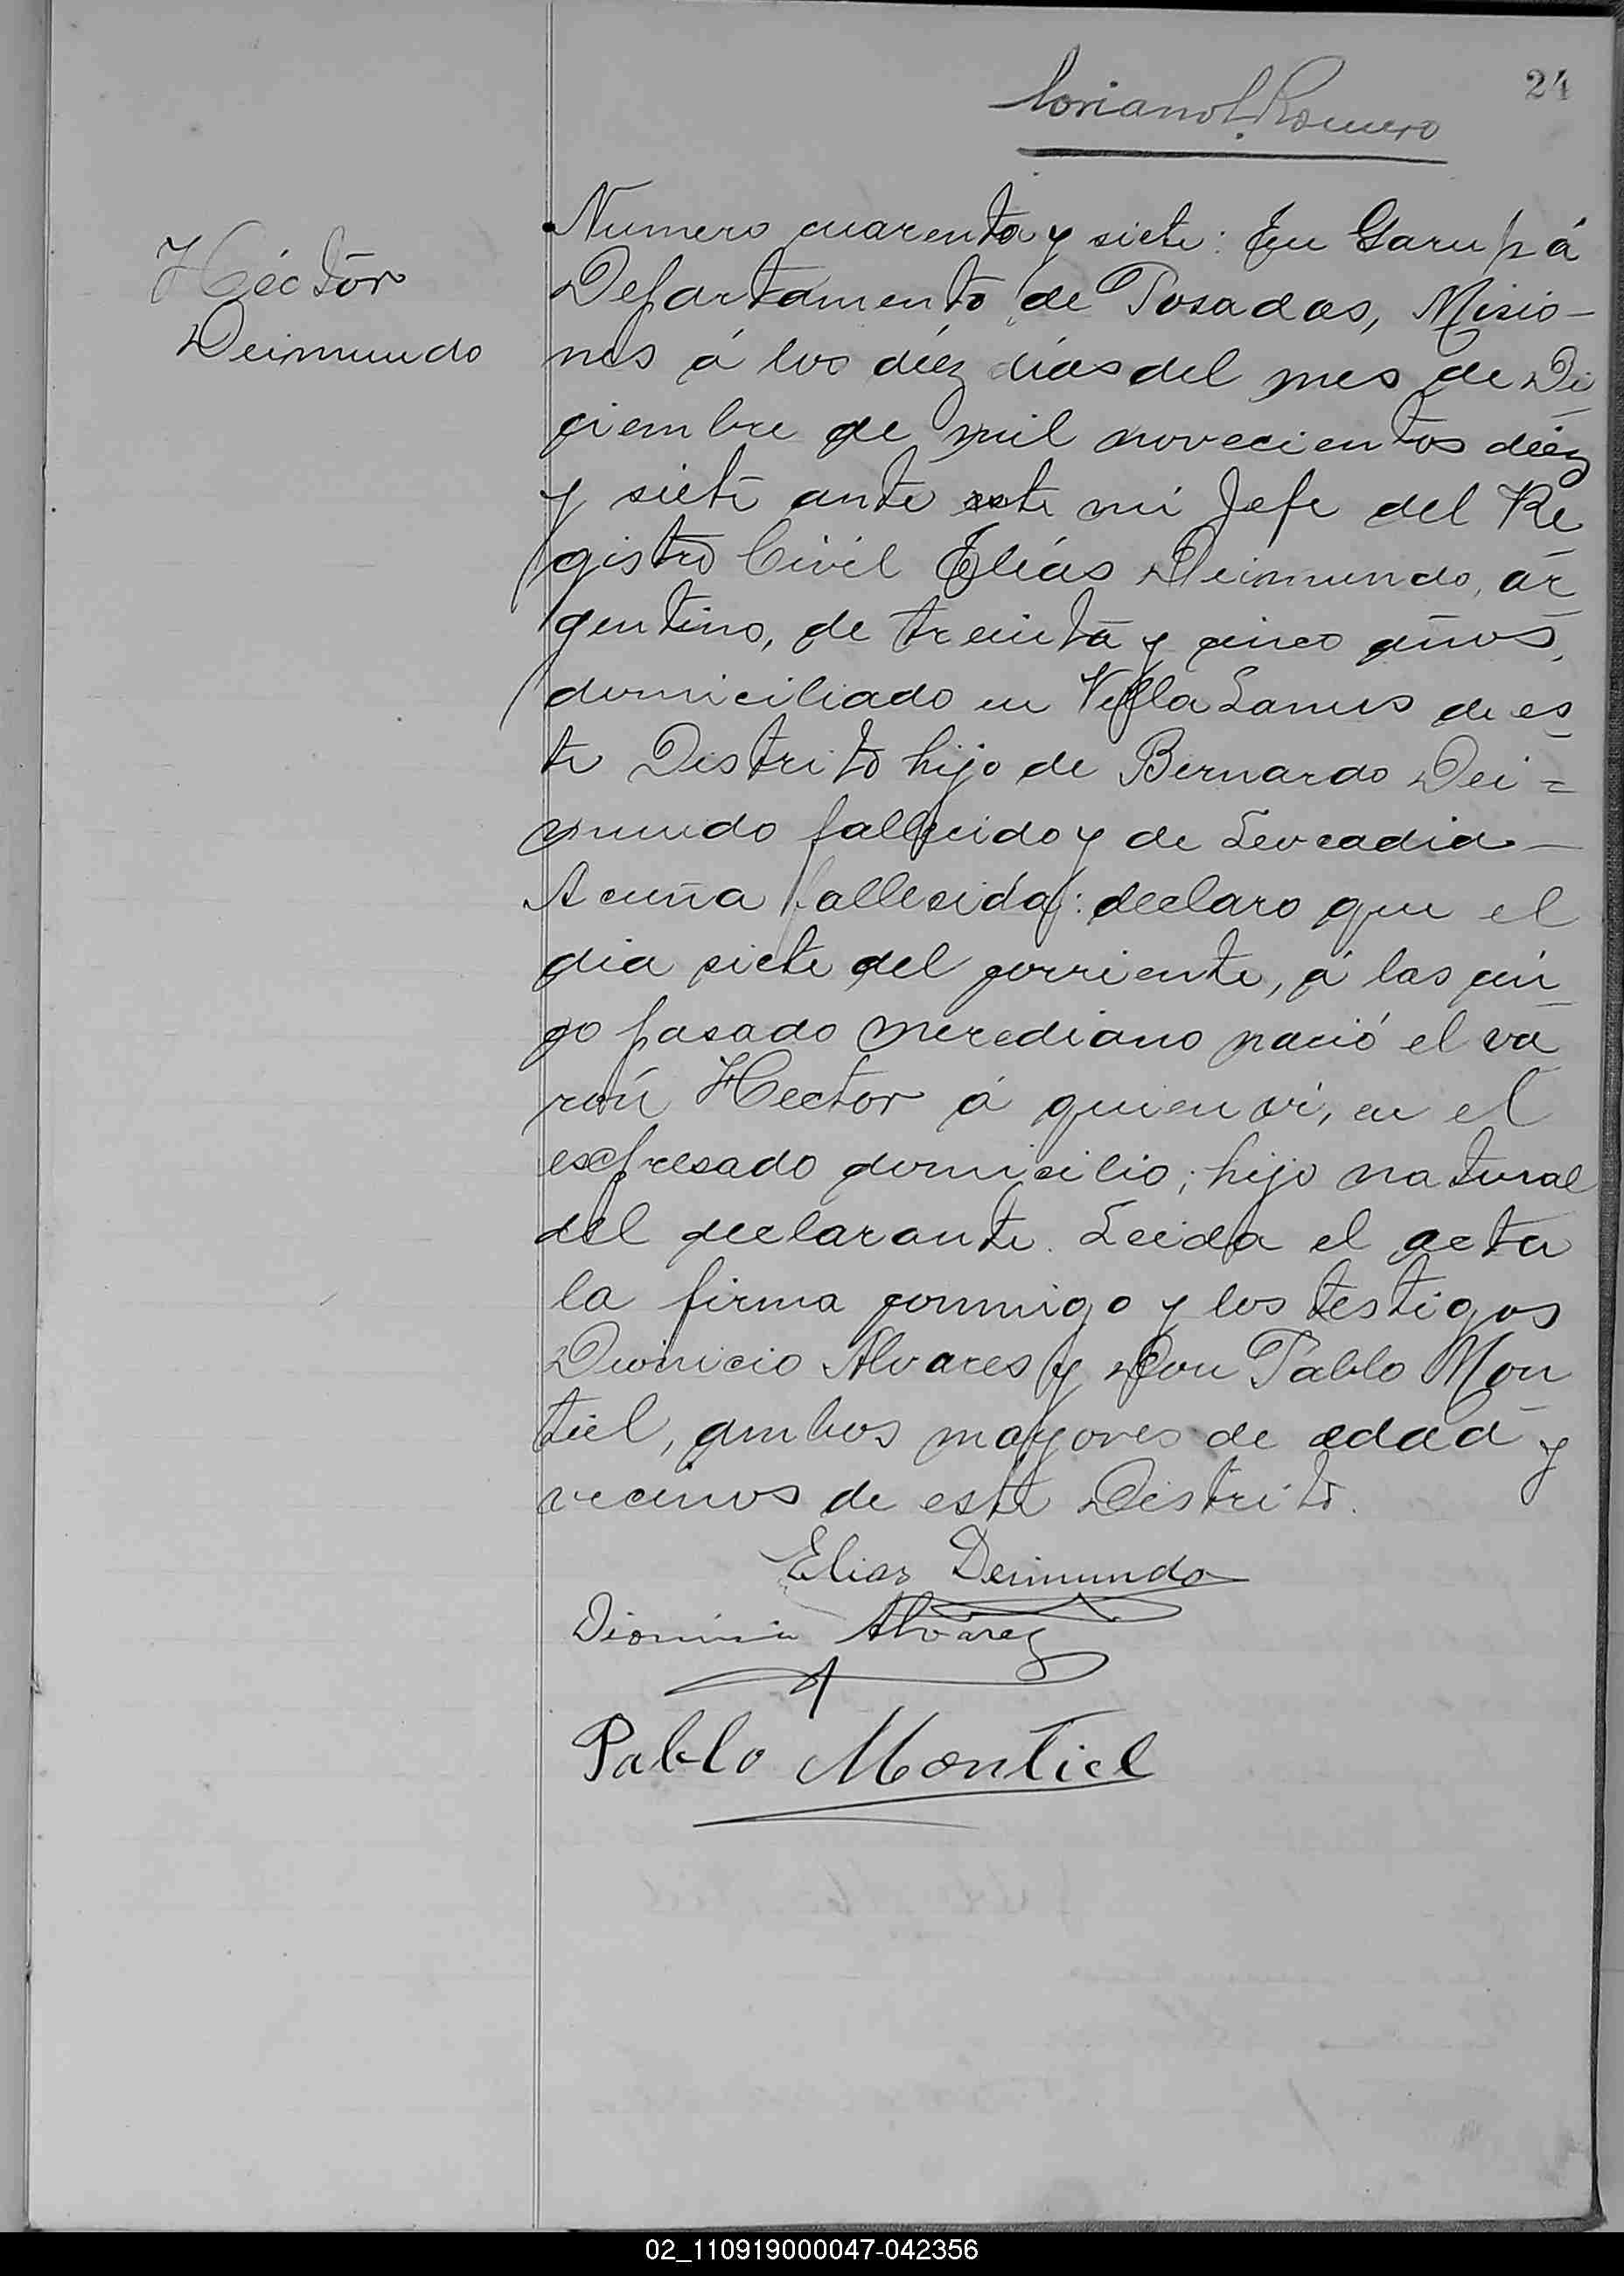 24
Romero
Héctor
Deimundo
Numero cuarenta y siete: En Garupá
Departamento de Posadas, Misio-
nes á los diéz dias del mes de Di
ciembre de mil novecientos diéz
y siete ante este mi Jefe del Re
gistro Civil Elías Deimundo, ar
gentino, de treinta y cinco años,
domiciliado en Villa Lanus de es
te Distrito hijo de Bernardo Dei=
mundo fallecido y de Leocadia
Acuña fallecida: declaro que el
dia siete del corriente, á las cin
co pasado merediano nació el va
rón Hector á quien vi, en el
expresado domicilio; hijo natural
del declarante. Leida el acta
la firma conmigo y los testigos
Dionicio Alvares y Don Pablo Mon
tiel, ambos mayores de edad y
vecinos de este Distrito.
Elias Deimundo
Dionisio Alvarez
Pablo Montiel
02_110919000047-042356